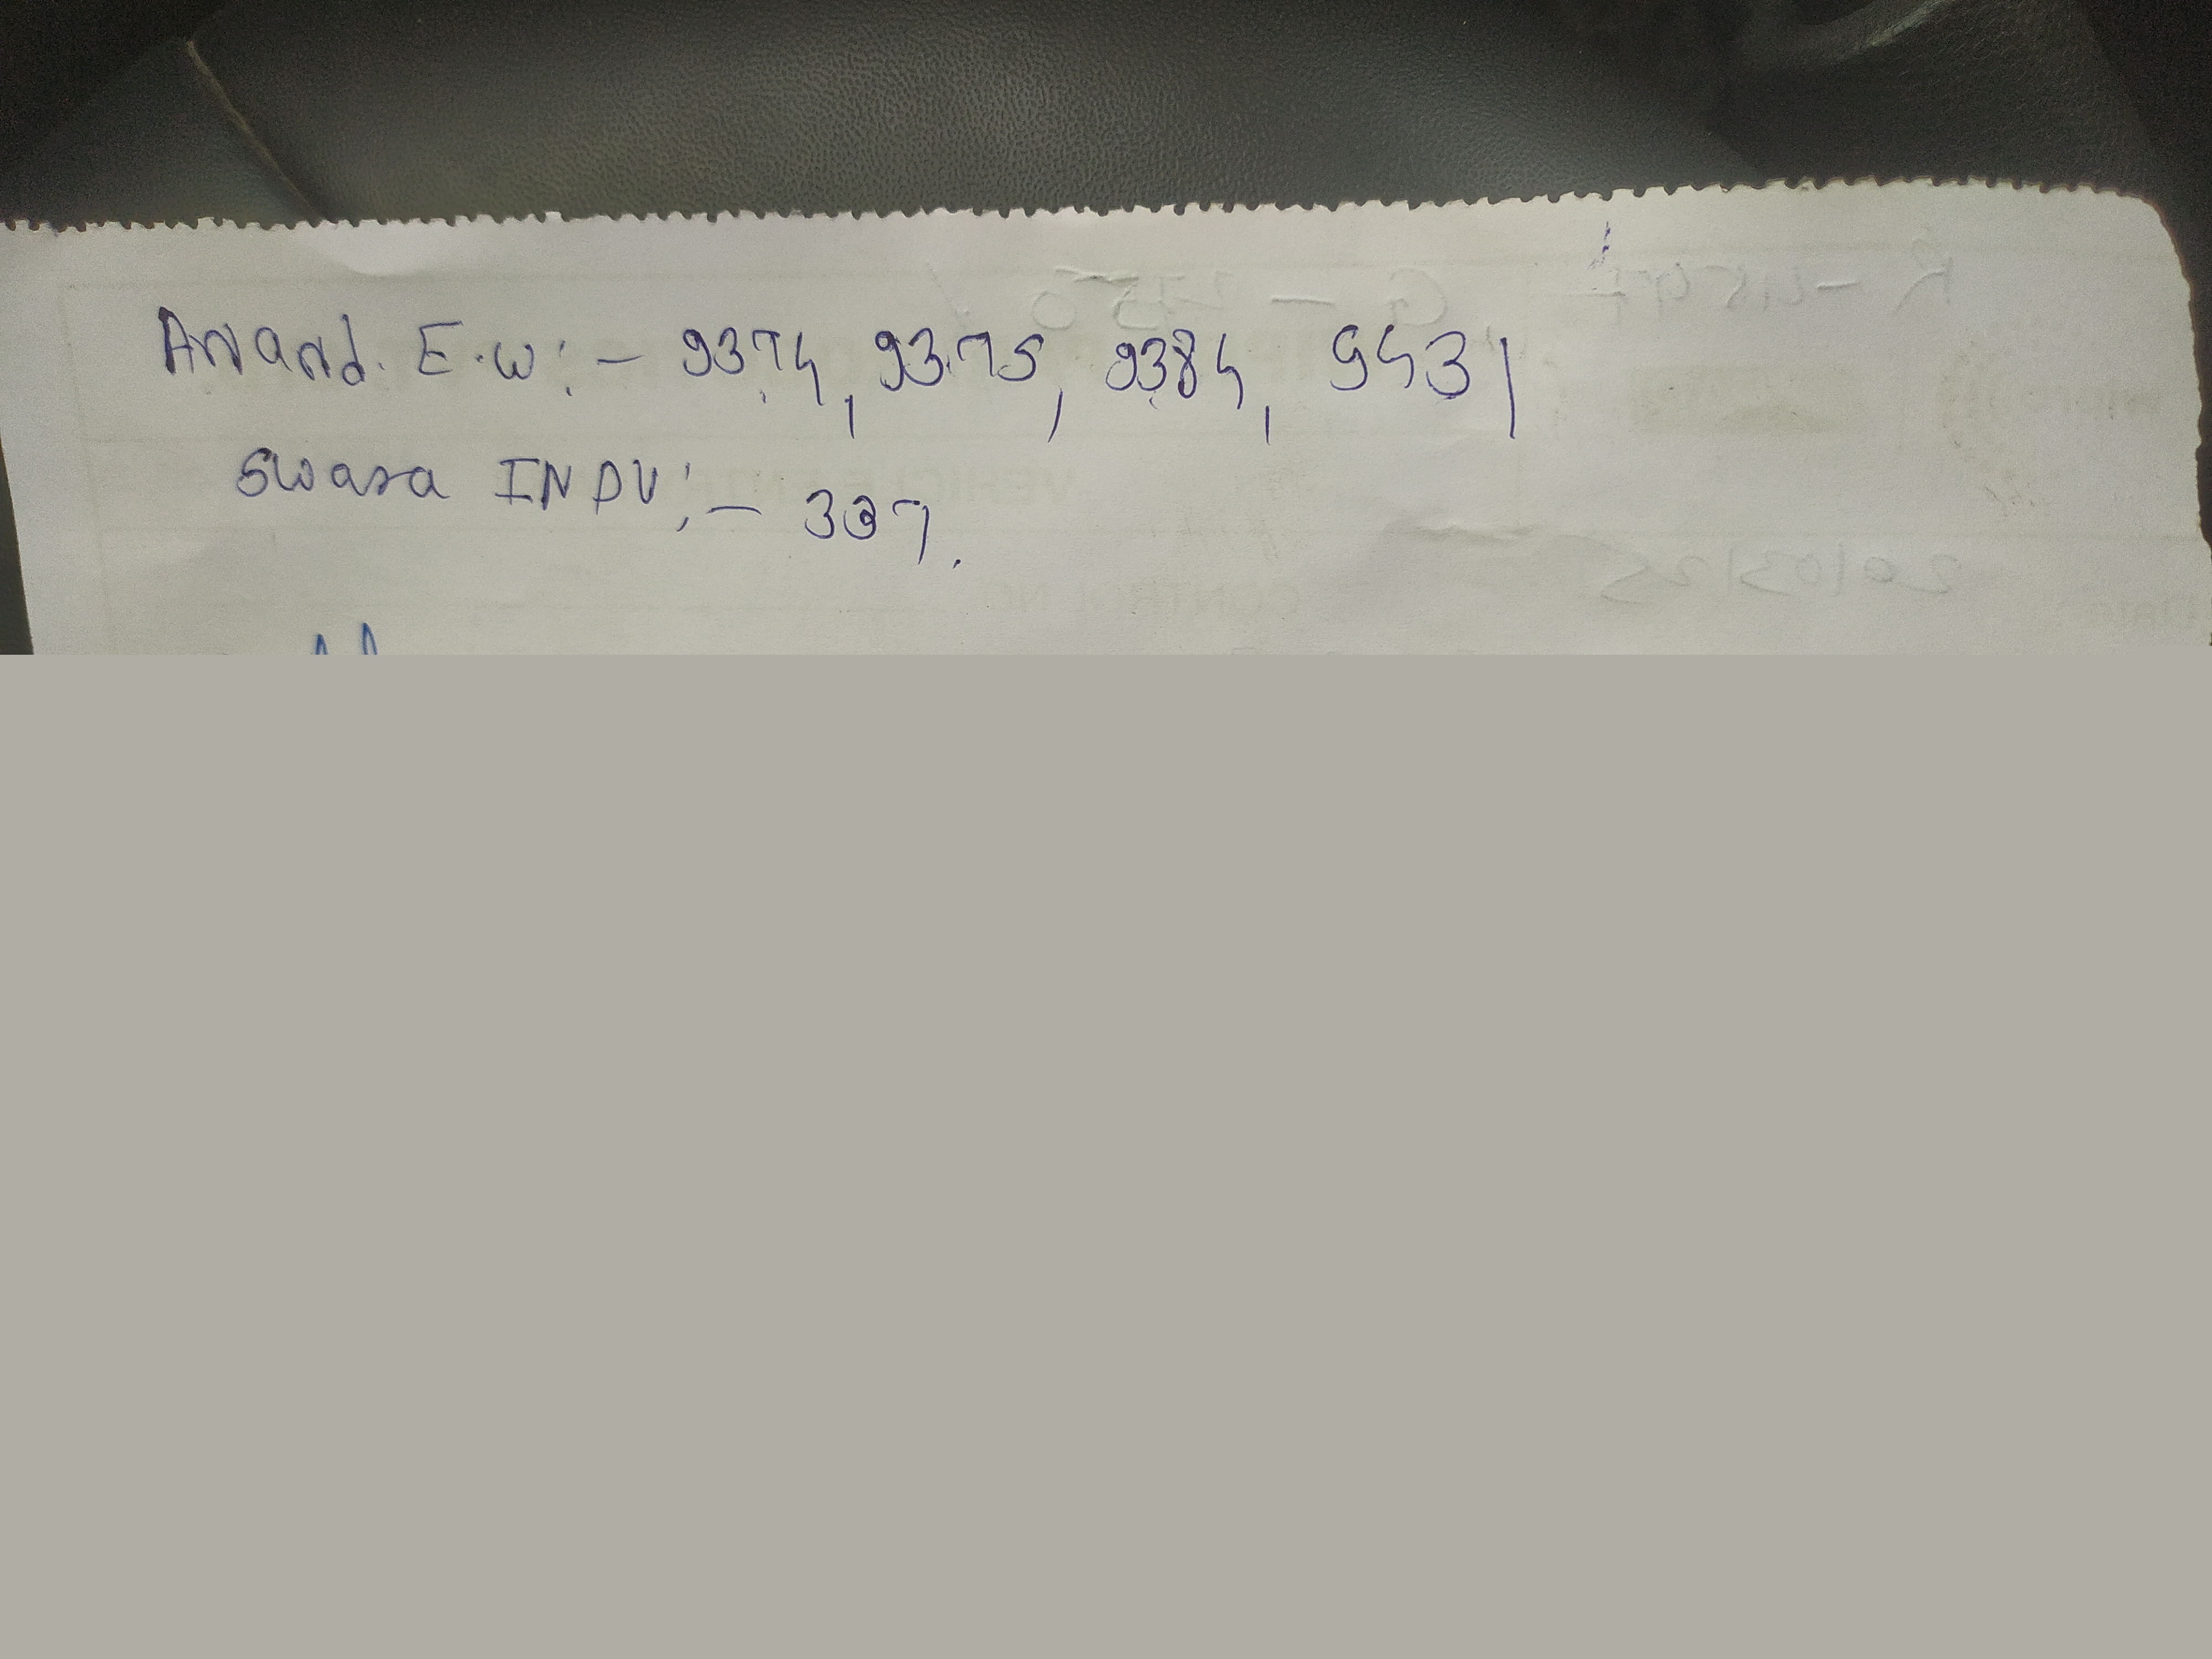 Anand. E.W:- 9374, 9375, 9384, 9431
Swara INDU:- 337.